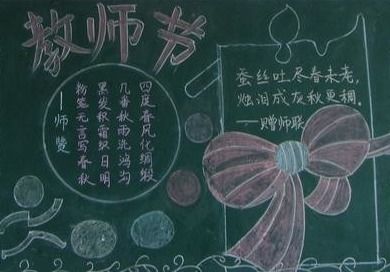 教师节
四度春风化绸缎
几番秋雨洗鸿沟
黑发积霜织日月
粉笔无言写春秋
——师赞
蚕丝吐尽春未老,
烛泪成灰秋更稠.
——赠师联